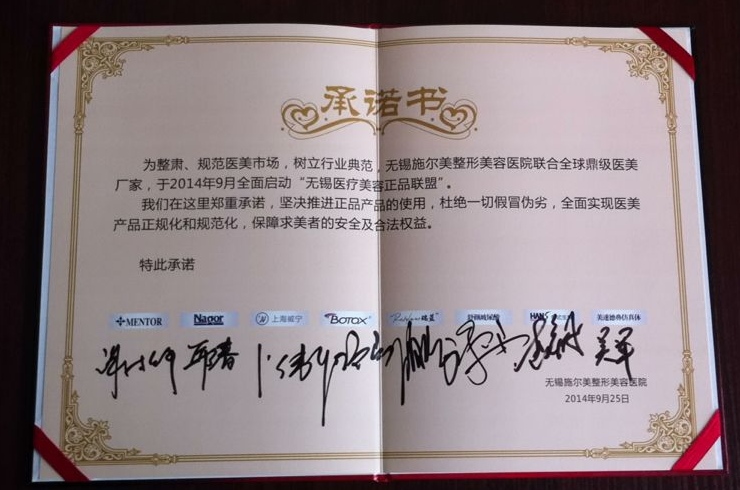 承诺书
为整肃、规范医美市场，树立行业典范，无锡施尔美整形美容医院联合全球鼎级医美
厂家，于2014年9月全面启动“无锡医疗美容正品联盟”。
我们在这里郑重承诺，坚决推进正品产品的使用，杜绝一切假冒伪劣，全面实现医美
产品正规化和规范化，保障求美者的安全及合法权益。
特此承诺
MENTOR Nagor 上海威宁 BOTOX 瑞蓝 舒颜玻尿酸 美速德乔仿真体
无锡施尔美整形美容医院
2014年9月25日